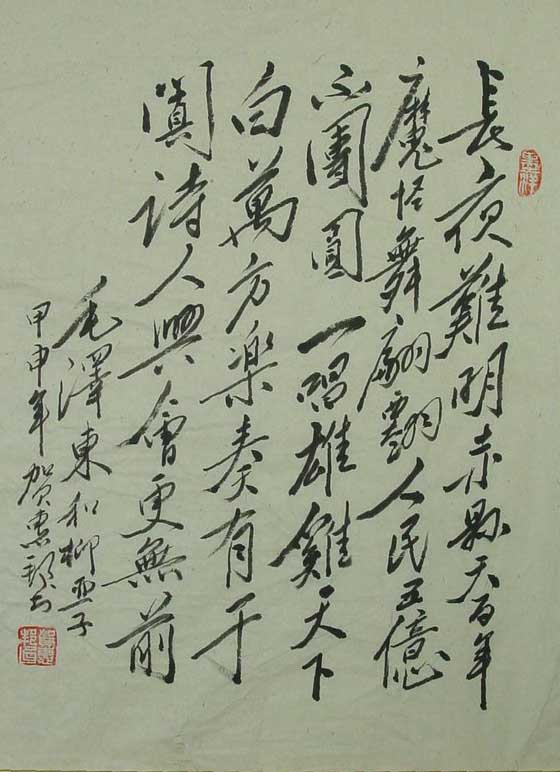 長夜難明赤縣天百年
魔怪舞翩翻人民五億
不團圓一唱雄雞天下
白萬方樂奏有于
闐詩人興會更無前
毛澤東和柳亞子
甲申年賀惠邦书